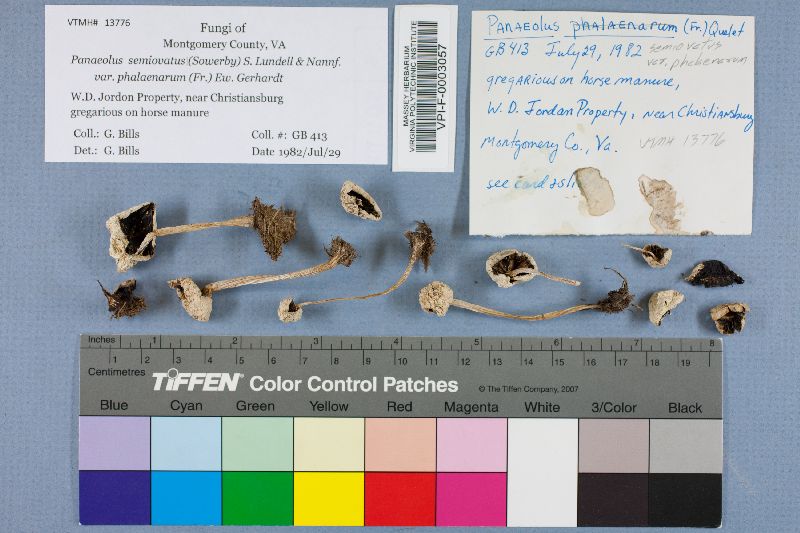 VTMH# 13776
Fungi of
Montgomery County, VA
Panaeolus semiovatus (Sowerby) S. Lundell & Nannf.
var. phalaenarum (Fr.) Ew. Gerhardt
W.D. Jordon Property, near Christiansburg
gregarious on horse manure
Coll.: G. Bills Coll. #: GB 413
Det.: G. Bills Date 1982/Jul/29
MASSEY HERBARIUM
VIRGINIA POLYTECHNIC INSTITUTE
VPI-F-0003057
Panaeolus phalaenarum (Fr.) Quelet
GB 413 July 29, 1982 semiovatus
var. phalaenarum
gregarious on horse manure,
W. D. Jordan Property, near Christiansburg
Montgomery Co., Va. VTMH 13776
see card
Inches 1 2 3 4 5 6 7 8
Centimetres 1 2 3 4 5 6 7 8 9 10 11 12 13 14 15 16 17 18 19
TIFFEN® Color Control Patches © The Tiffen Company, 2007
Blue Cyan Green Yellow Red Magenta White 3/Color Black